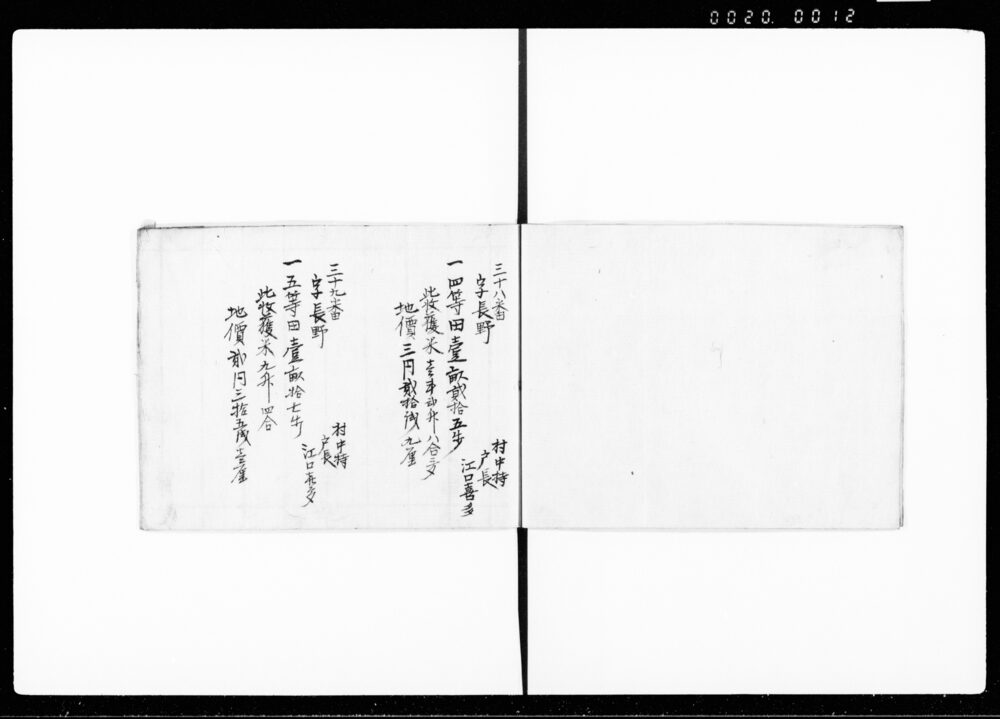 0020. 0012
三十八番
字長野
一四等田壹畝貳拾五歩
此收穫米壹斗弐升八合三夕
地價三円貳拾銭九厘
村中持
戸長
江口喜多
三十九番
字長野
一五等田壹畝拾七歩
此收穫米九升四合
地價貳円三拾五銭壹厘
村中持
戸長
江口喜多